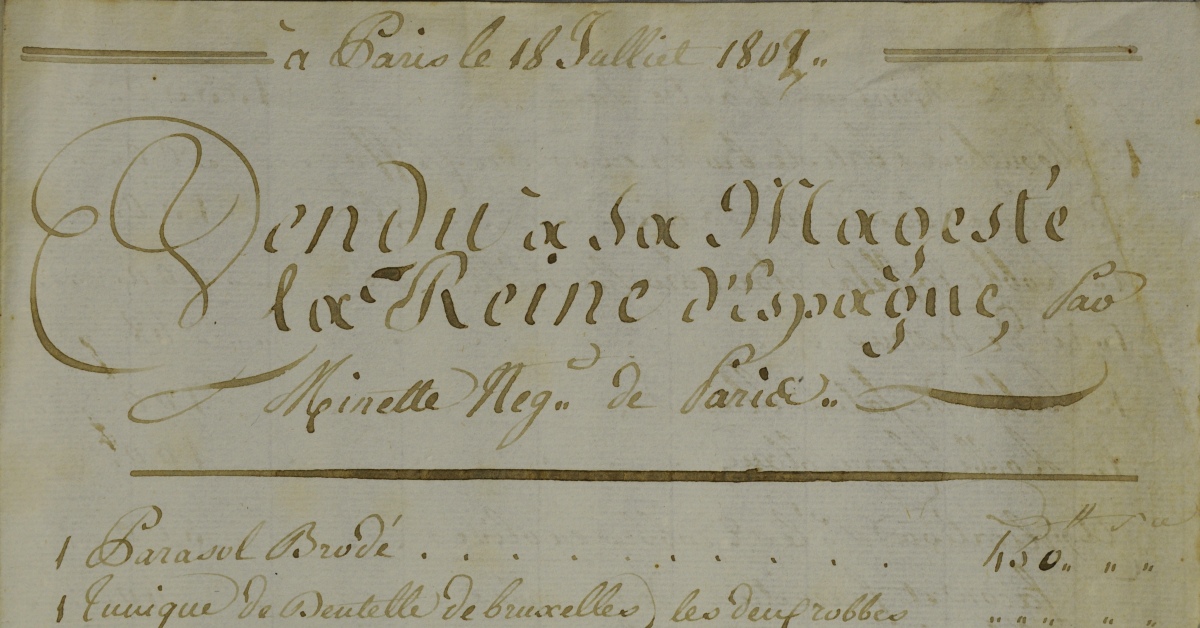 à Paris le 18 Julliet 1802„
Vendu à sa Magesté
la Reine d'Espagne, Par
Minette Neg.t de Paris„
tt s de
1 Parasol Brodé . . . . . . . . . . 450„ „ „
1 Tunique de Dentelle de bruxelles) les deux robbes „„„ „ „